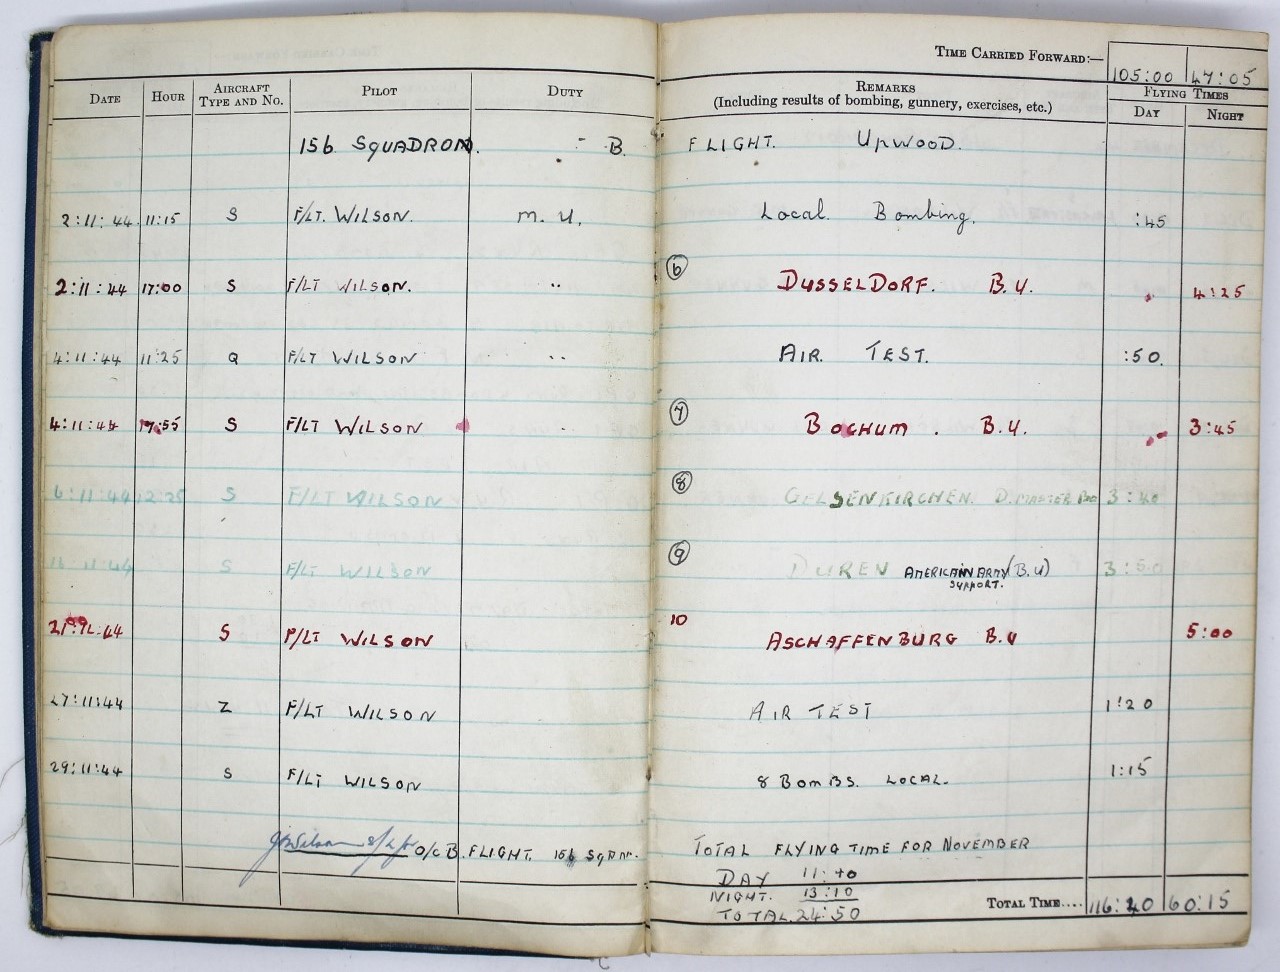 TIME CARRIED FORWARD:— 105:00 47:05
DATE HOUR AIRCRAFT TYPE AND NO. PILOT DUTY REMARKS (Including results of bombing, gunnery, exercises, etc.) FLYING TIMES DAY NIGHT
156 SQUADRON. - B. FLIGHT. UPWOOD.
2:11:44 11:15 S F/LT. WILSON. M.U. Local Bombing. :45
2:11:44 17:00 S F/LT WILSON. " 6 DUSSELDORF. B.U. 4:25
4:11:44 11:25 Q F/LT WILSON " AIR TEST. :50.
4:11:44 17:55 S F/LT WILSON 7 BOCHUM. B.U. 3:45
6:11:44 S F/LT WILSON 8 GELSENKIRCHEN. D. MASTER 3:40
11:44 S F/LT WILSON 9 DUREN AMERICAN ARMY SUPPORT. (B.U) 3:50
S F/LT WILSON 10 ASCHAFFENBURG B.U 5:00
27:11:44 Z F/LT WILSON AIR TEST 1:20
29:11:44 S F/LT WILSON 8 BOMBS. LOCAL. 1:15
Wilson S/Ldr O/C B. FLIGHT. 156 SQDN. TOTAL FLYING TIME FOR NOVEMBER
DAY 11:40
NIGHT. 13:10
TOTAL. 24:50
TOTAL TIME.... 116:40 60:15